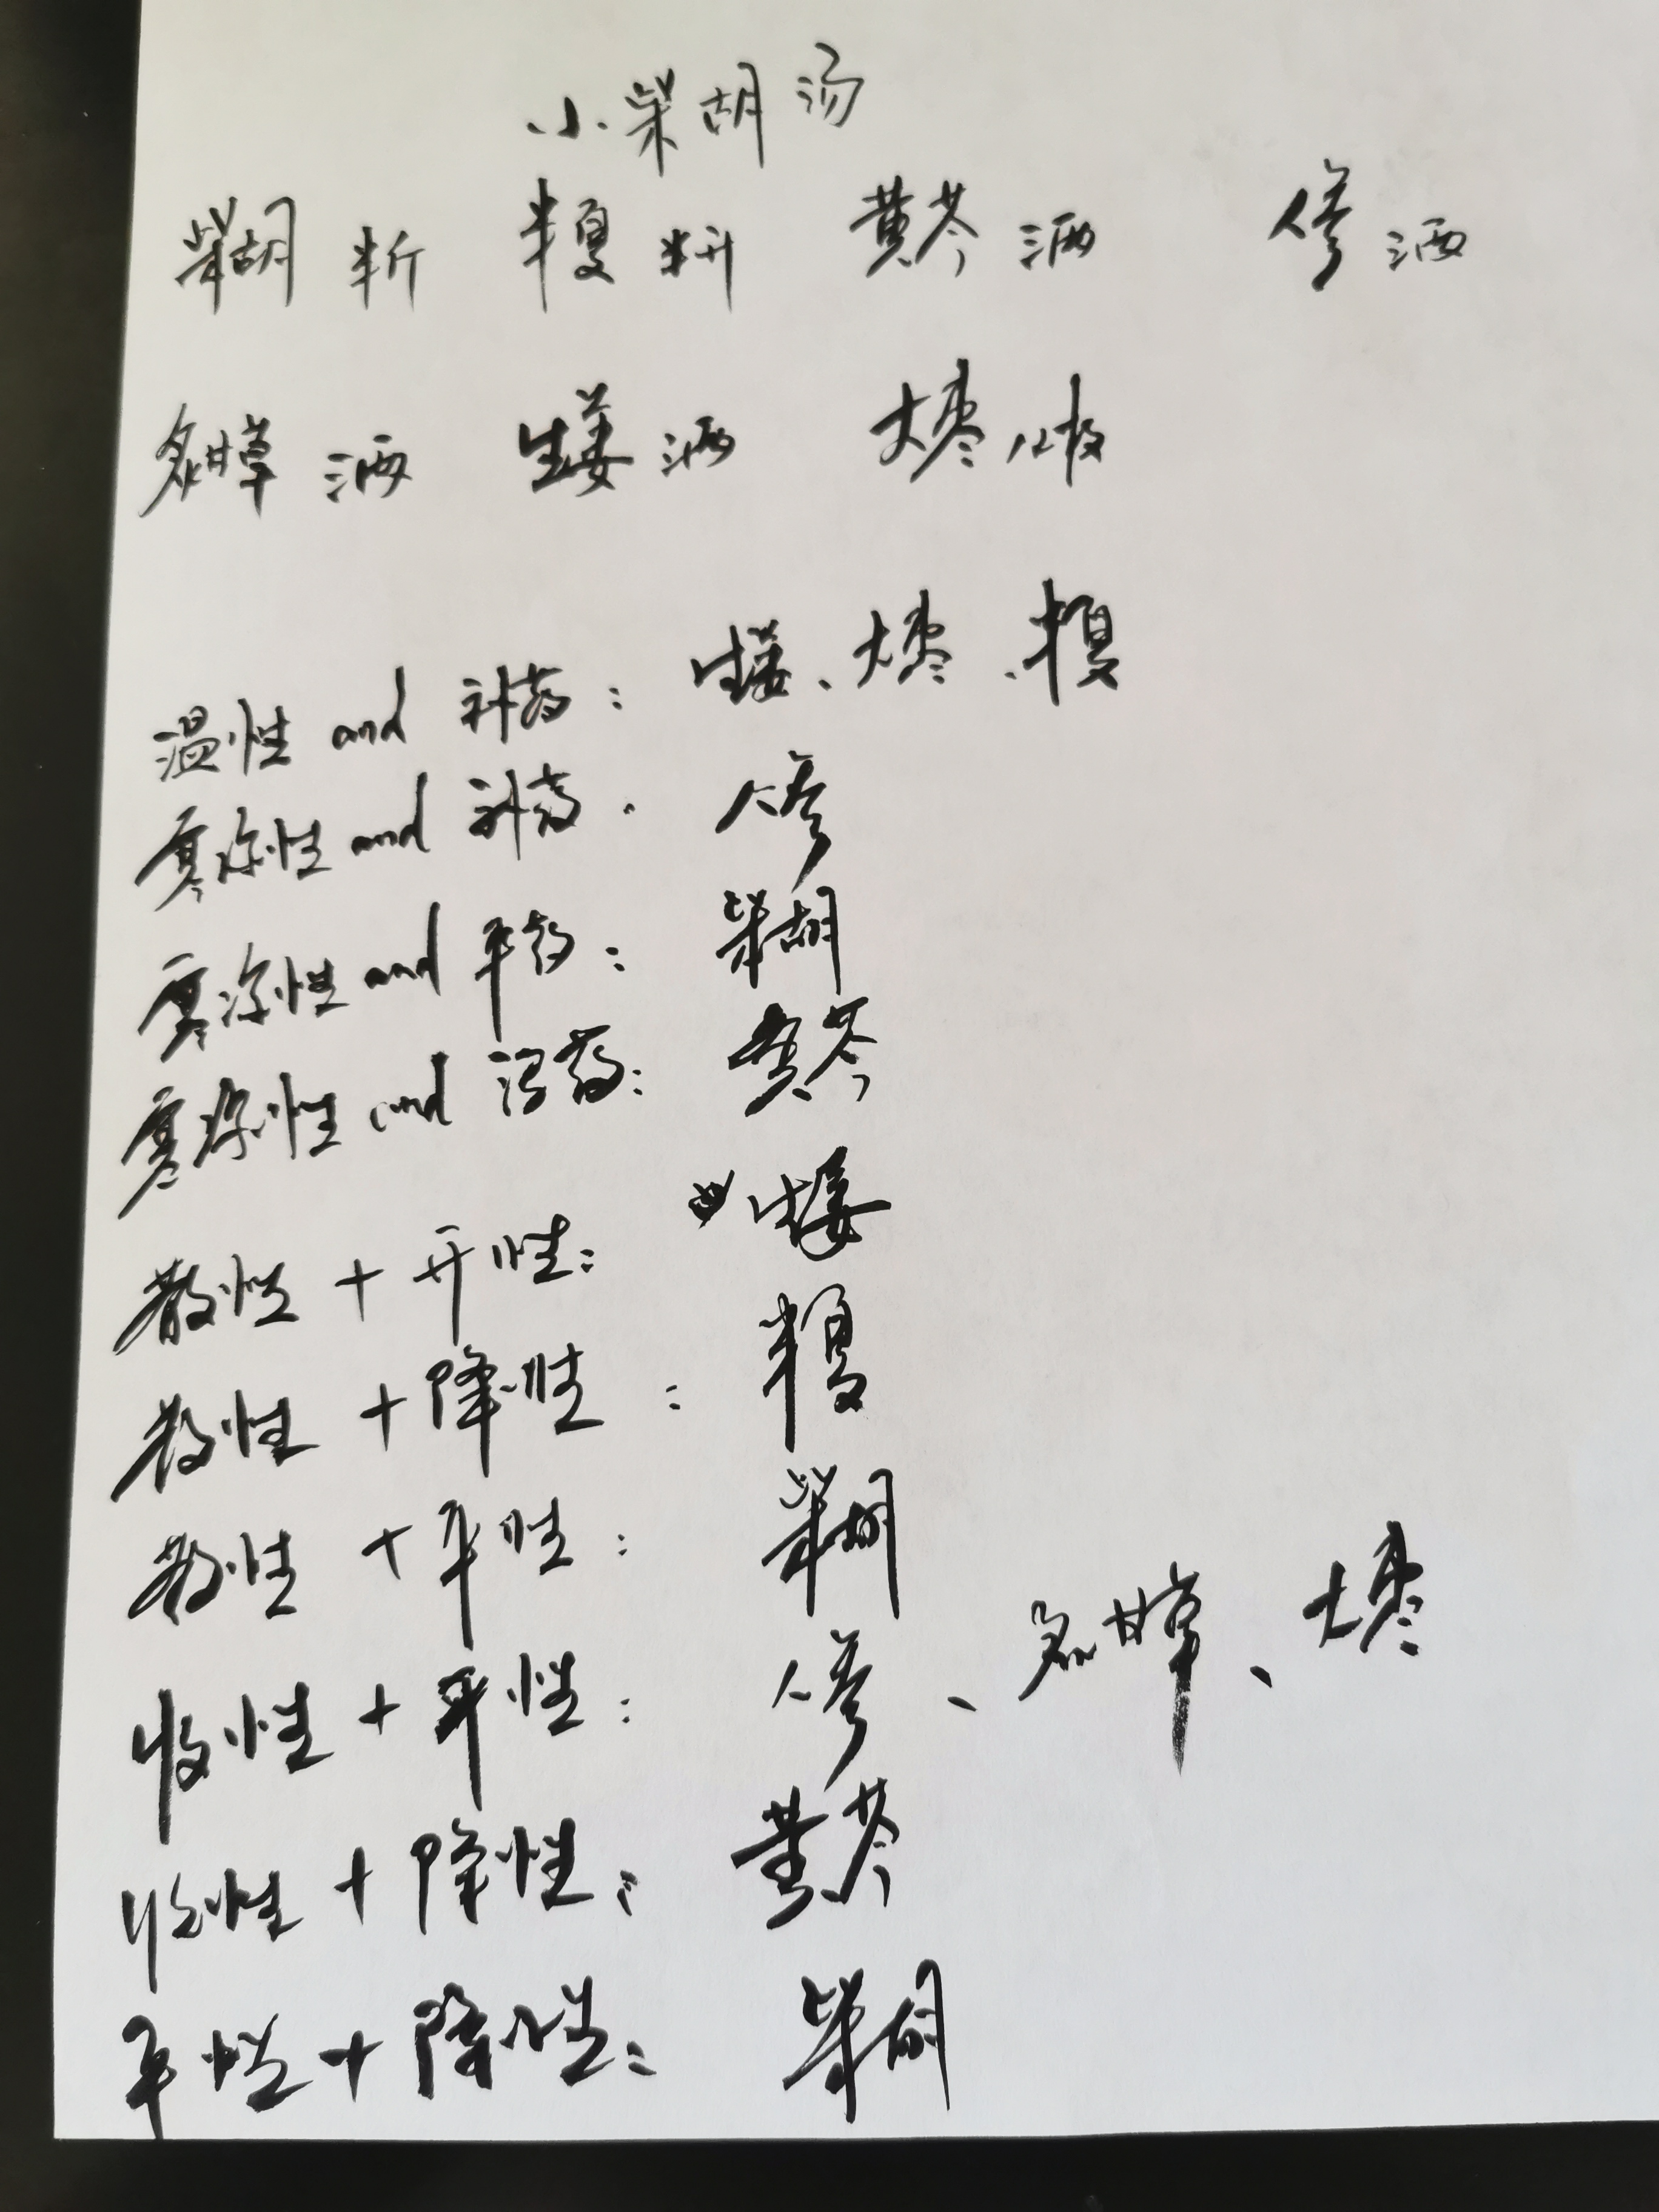 小柴胡汤
柴胡半斤 半夏半升 黄芩三两 人参三两
炙甘草三两 生姜三两 大枣12枚
温性 and 补药：生姜、大枣、半夏
寒凉性 and 补药：人参
寒凉性 and 平药：柴胡
寒凉性 and 泻药：黄芩
散性 + 升性：生姜
散性 + 降性：半夏
散性 + 平性：柴胡
收性 + 平性：人参、炙甘草、大枣
收性 + 降性：黄芩
平性 + 降性：柴胡